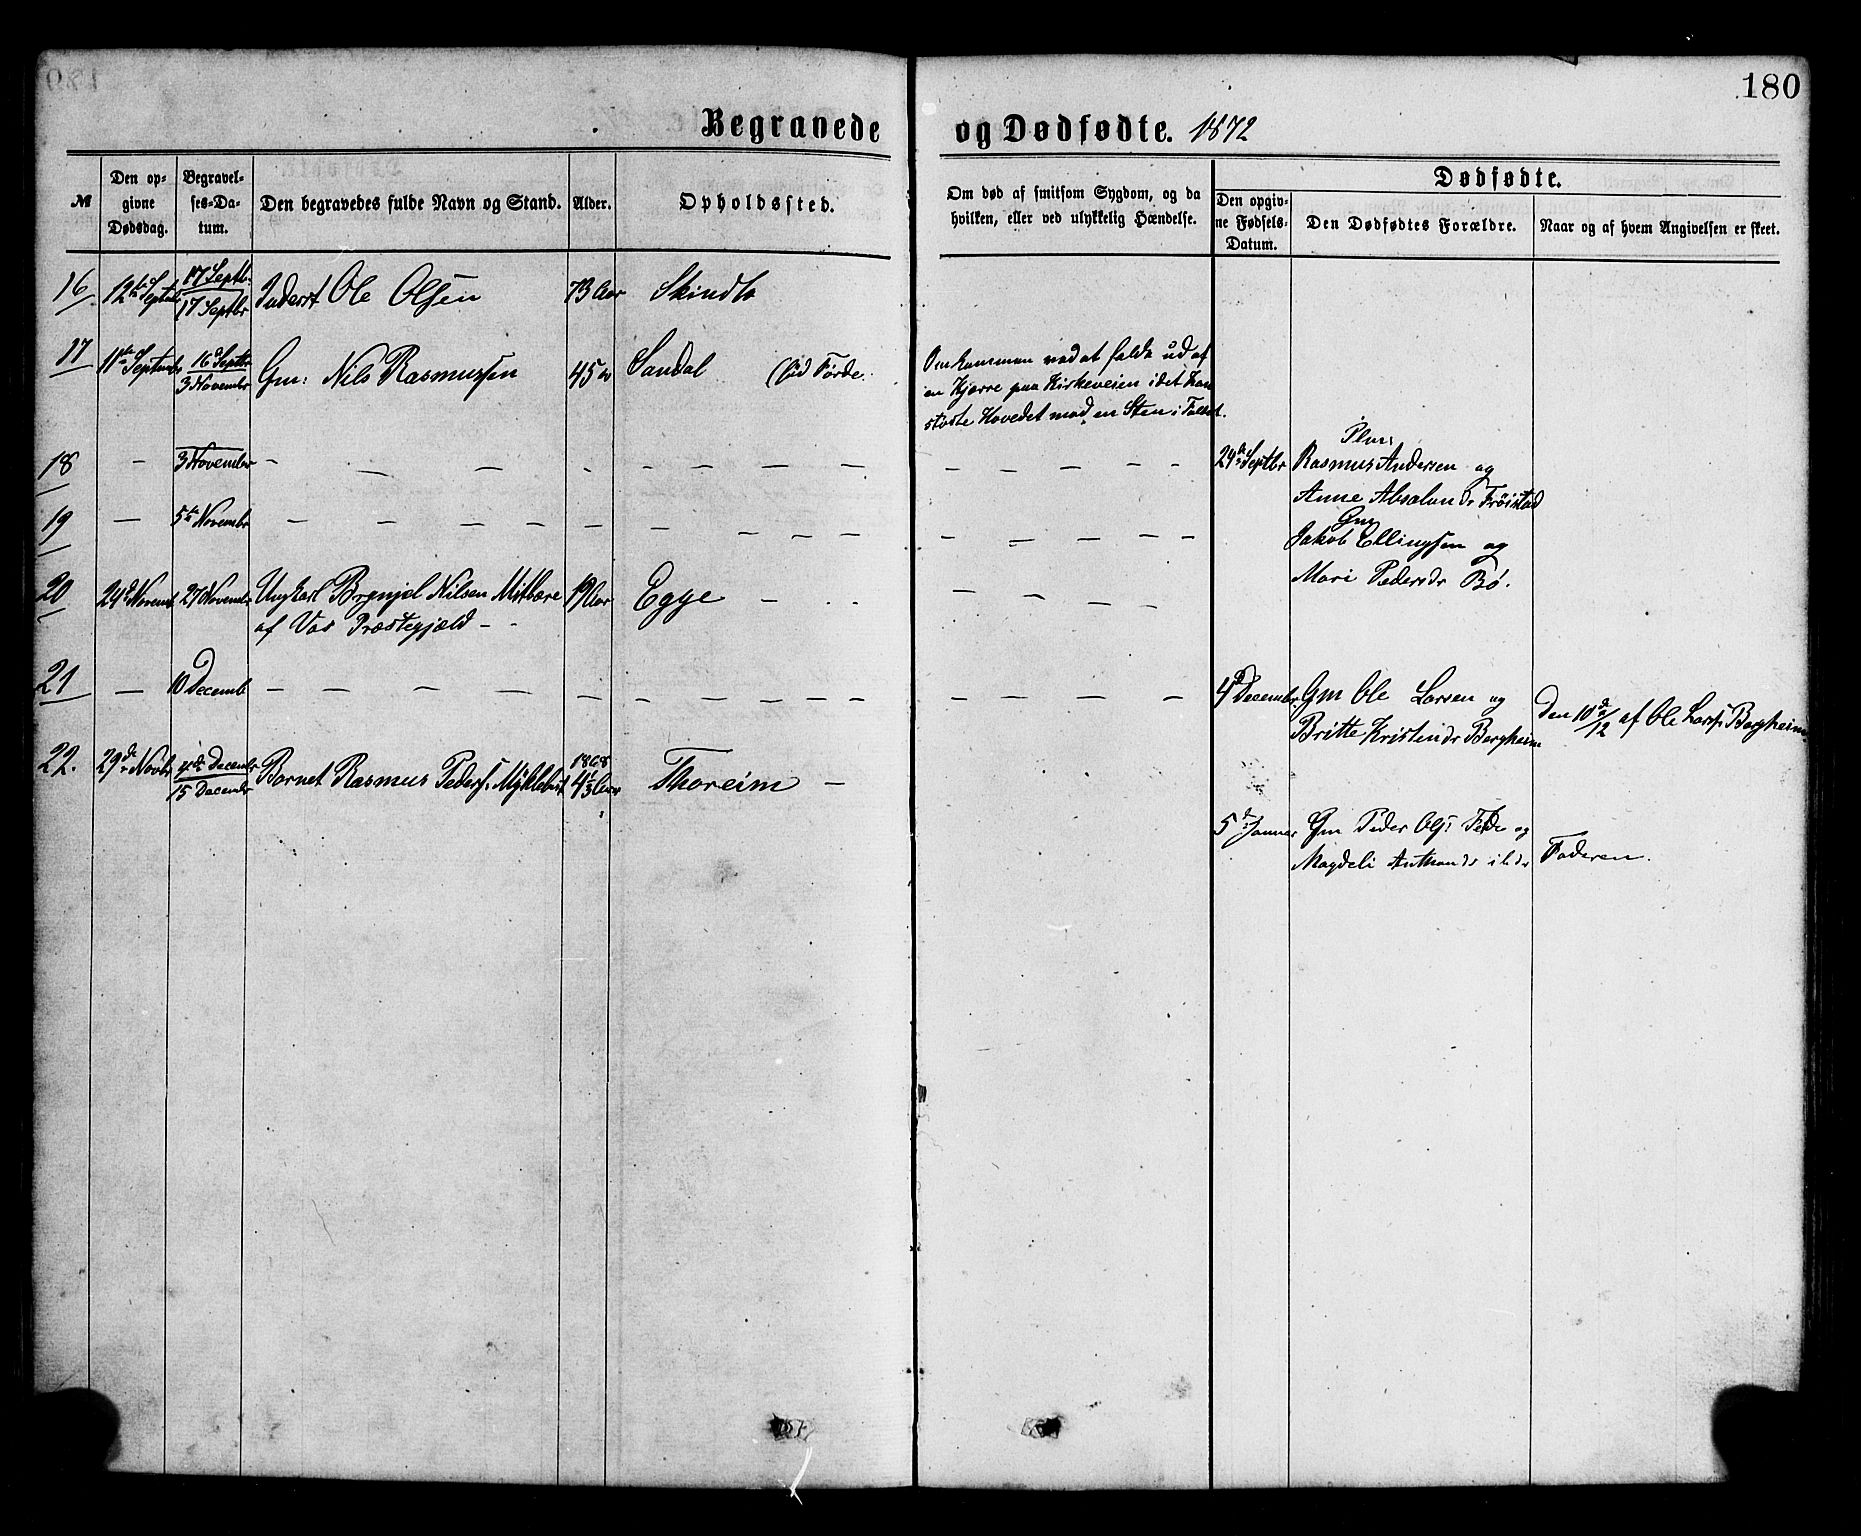 180
Begravede og Dødfødte. 1872
№
Den opgivne Dødsdag.
Begravelses-Datum.
Den begravedes fulde Navn og Stand.
Alder.
Opholdssted.
Om død af smitsom Sygdom, og da hvilken, eller ved ulykkelig Hændelse.
Dødfødte.
Den opgivne Fødsels-Datum.
Den Dødfødtes Forældre.
Naar og af hvem Angivelsen er skeet.
16 12te Septbr 17 Septbr Inderst Ole Olsen 73 Aar
17 Septbr
17 11te Septembr 16 Septbr Gm: Nils Rasmussen 45 Sandal Førde. Omkommen ved at falde ud af
3 Novembr en Kjærre paa Kirkeveien idet han
stødte Hovedet mod en Sten i Faldet.
18 — 3 Novembr — — — — — — — — — 24de Septbr Rasmus Andersen og
Anne Absalonsdr Frøistad
19 — 5te Novembr — — — — — — — — — Gm
Jakob Ellingsen og
Mari Pedersdr Bø.
20 24de Novemb 27 Novembr Ungkarl Brynjel Nilsen 19 Aar Egge — — — — —
af Vos Præstegjæld —
21 — 10 Decemb — — — — — — — — — 4de Decembr Gm Ole Larsen og
Britte Kristensdr Bergheim Den 10de/12 af Ole Larss: Bergheim
22. 29de Novbr Decembr Barnet Rasmus Peders: Myklebust 1868 Thoreim —
15 Decembr 4 1/3 Aar
5te Januar Gm Peder Ols: og
Magdeli Faderen.